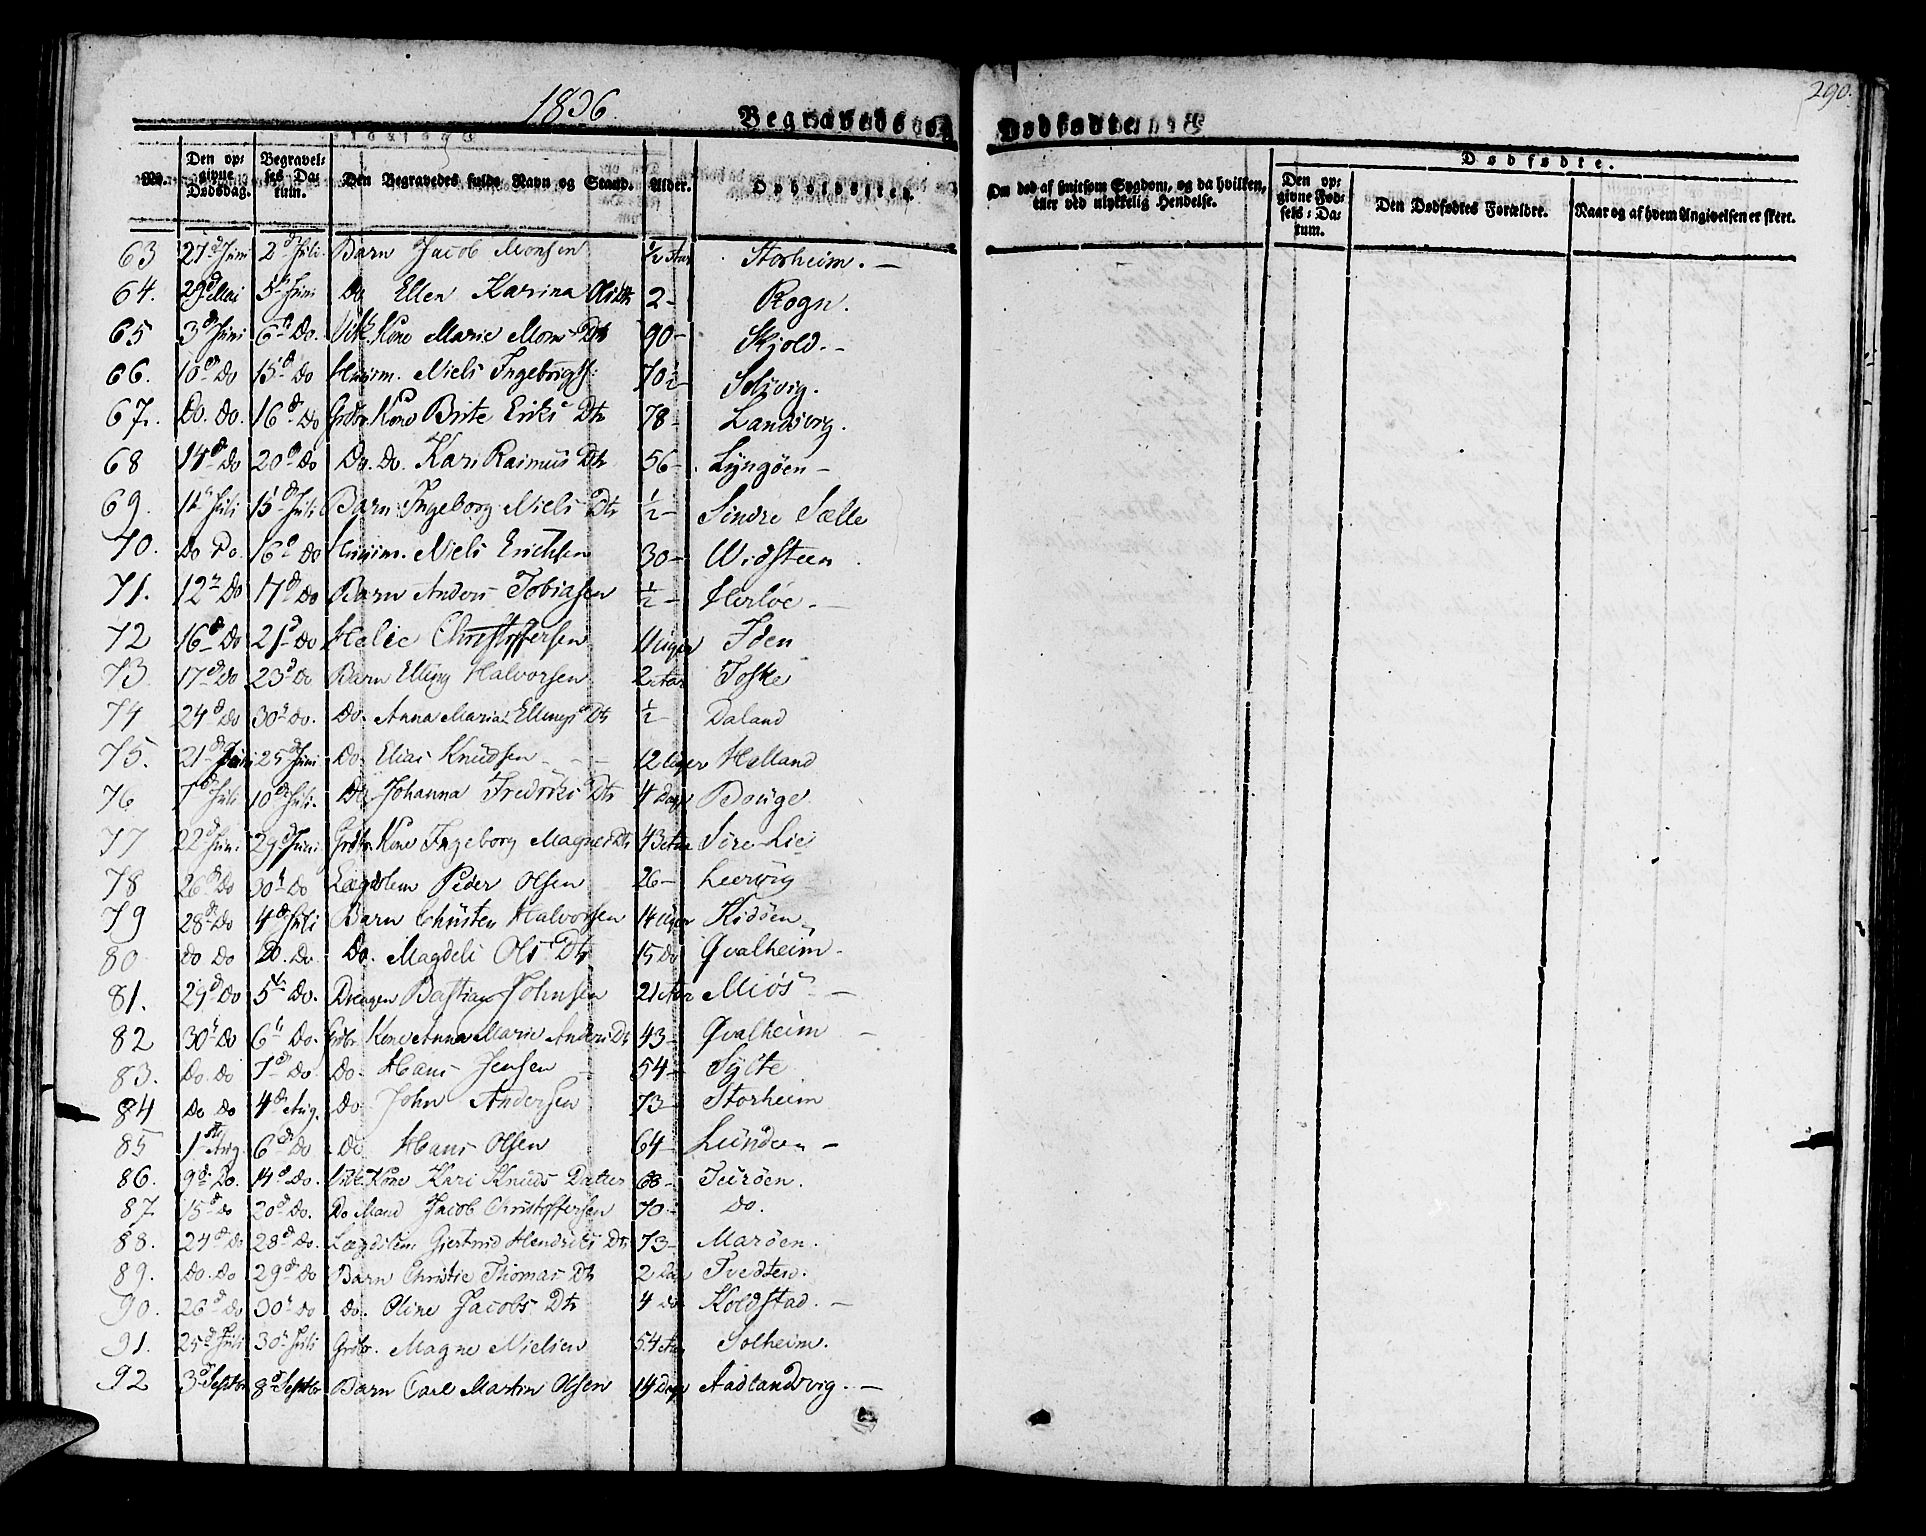 1836
Begravede og
Dødfødte
290.
No.
Den opgivne Dødsdag.
Begravelses Datum.
Den Begravedes fulde Navn og Stand.
Alder.
Opholdssted.
Om død af smitsom Sygdom, og da hvilken, eller ved ulykkelig Hendelse.
Dødfødte.
Den opgivne Fødsels-Datum.
Den Dødfødtes Forældre.
Naar og af hvem Angivelsen er skeet.
63 27d Juni 2d Juli Barn Jacob Monsen 1/2 Aar Storheim.
64. 29d Mai 5te Juni Do Ellen Karina Olsdtr 2 - Rogn.
65 3d Juni 6te Do. Vilk. Kone Marie Mons Dtr 90 - Skjold. -
66. 10d Do 15d Do Huusm. Niels Ingebrigts: 70 1/2 - Solsvig.
67. Do. Do. 16d Do Grdbr. Kone Brite Eriks Dtr 78 - Landsvig.
68 14d Do 20d Do Do. Do. Kari Rasmus Dtr 56 - Lyngøen -
69. 11te Juli 15d Juli Barn Ingeborg Niels Dtr 1/2 - Sindre Sælle
70. Do Do. 16d Do Huusm. Niels Erichsen 30 - Widsteen
71. 12te Do 17d Do Barn Anders Tobiasen 1/2 - Herløe -
72 16d Do 21d Do Christoffersen 11 Uger
73 17d Do 23d Do Barn Elling Halvorsen 2 Aar Toske
74 24d Do 30te Do. Do. Anna Maria Ellings Dtr 1/2 - Daland
75. 21d Juni 25d Juni Do Elias Knudsen - - - 12 Uger Halland
76 7d Juli 10d Juli. Do Johanna Fredriks Dtr 4 Dage Bouge
77 22d Juni 29d Juni Grdbr. Kone Ingeborg Magnes Dtr 43 Aar Søre Lie
78 26d Do 30te Do Lægdslem Peder Olsen 26 - Leervig
79 28d Do 4d Juli Barn Christen Halvorsen 14 Uger Kidøen
80 Do Do Do. Do Do. Magdeli Ols Dtr 15 Do Qvalheim -
81. 29d Do 5te Do. Drengen Bastian Johnsen 21 Aar Miøs -
82 30te Do 6te Do. Grdbr. Kone Anna Marie Anders Dtr 43 - Qvalheim -
83. Do. Do 7d Do. Do. Hans Jensen - 54 - Sylte
84 Do Do 4d Aug. Do John Andersen 73 - Storheim
85 1ste Aug. 6d Do Do Hans Olsen 64 - Lunden -
86. 9d Do. 14d Do. Vilk. Kone Kari Knuds Datter 68 - Turøen.
87. 15d Do 20d Do. Do Mand Jacob Christoffersen 70 - Do.
88. 24d Do 28d Do. Lægdslem Giertrud Hendriks Dtr 73 - Marøen.
89. Do. Do 29d Do Barn Christie Thomas Dtr 2 Dage Tvedten.
90. 26d Do 30te Do Do. Oline Jacobs Dtr 4 Do Koldstad. -
91. 25d Juli 30te Juli Grdbr. Magne Nielsen 54 Aar Solheim.
92 3d Septbr 8d Septbr Barn Carl Martin Olsen 14 Dage Aadlandsvig. -